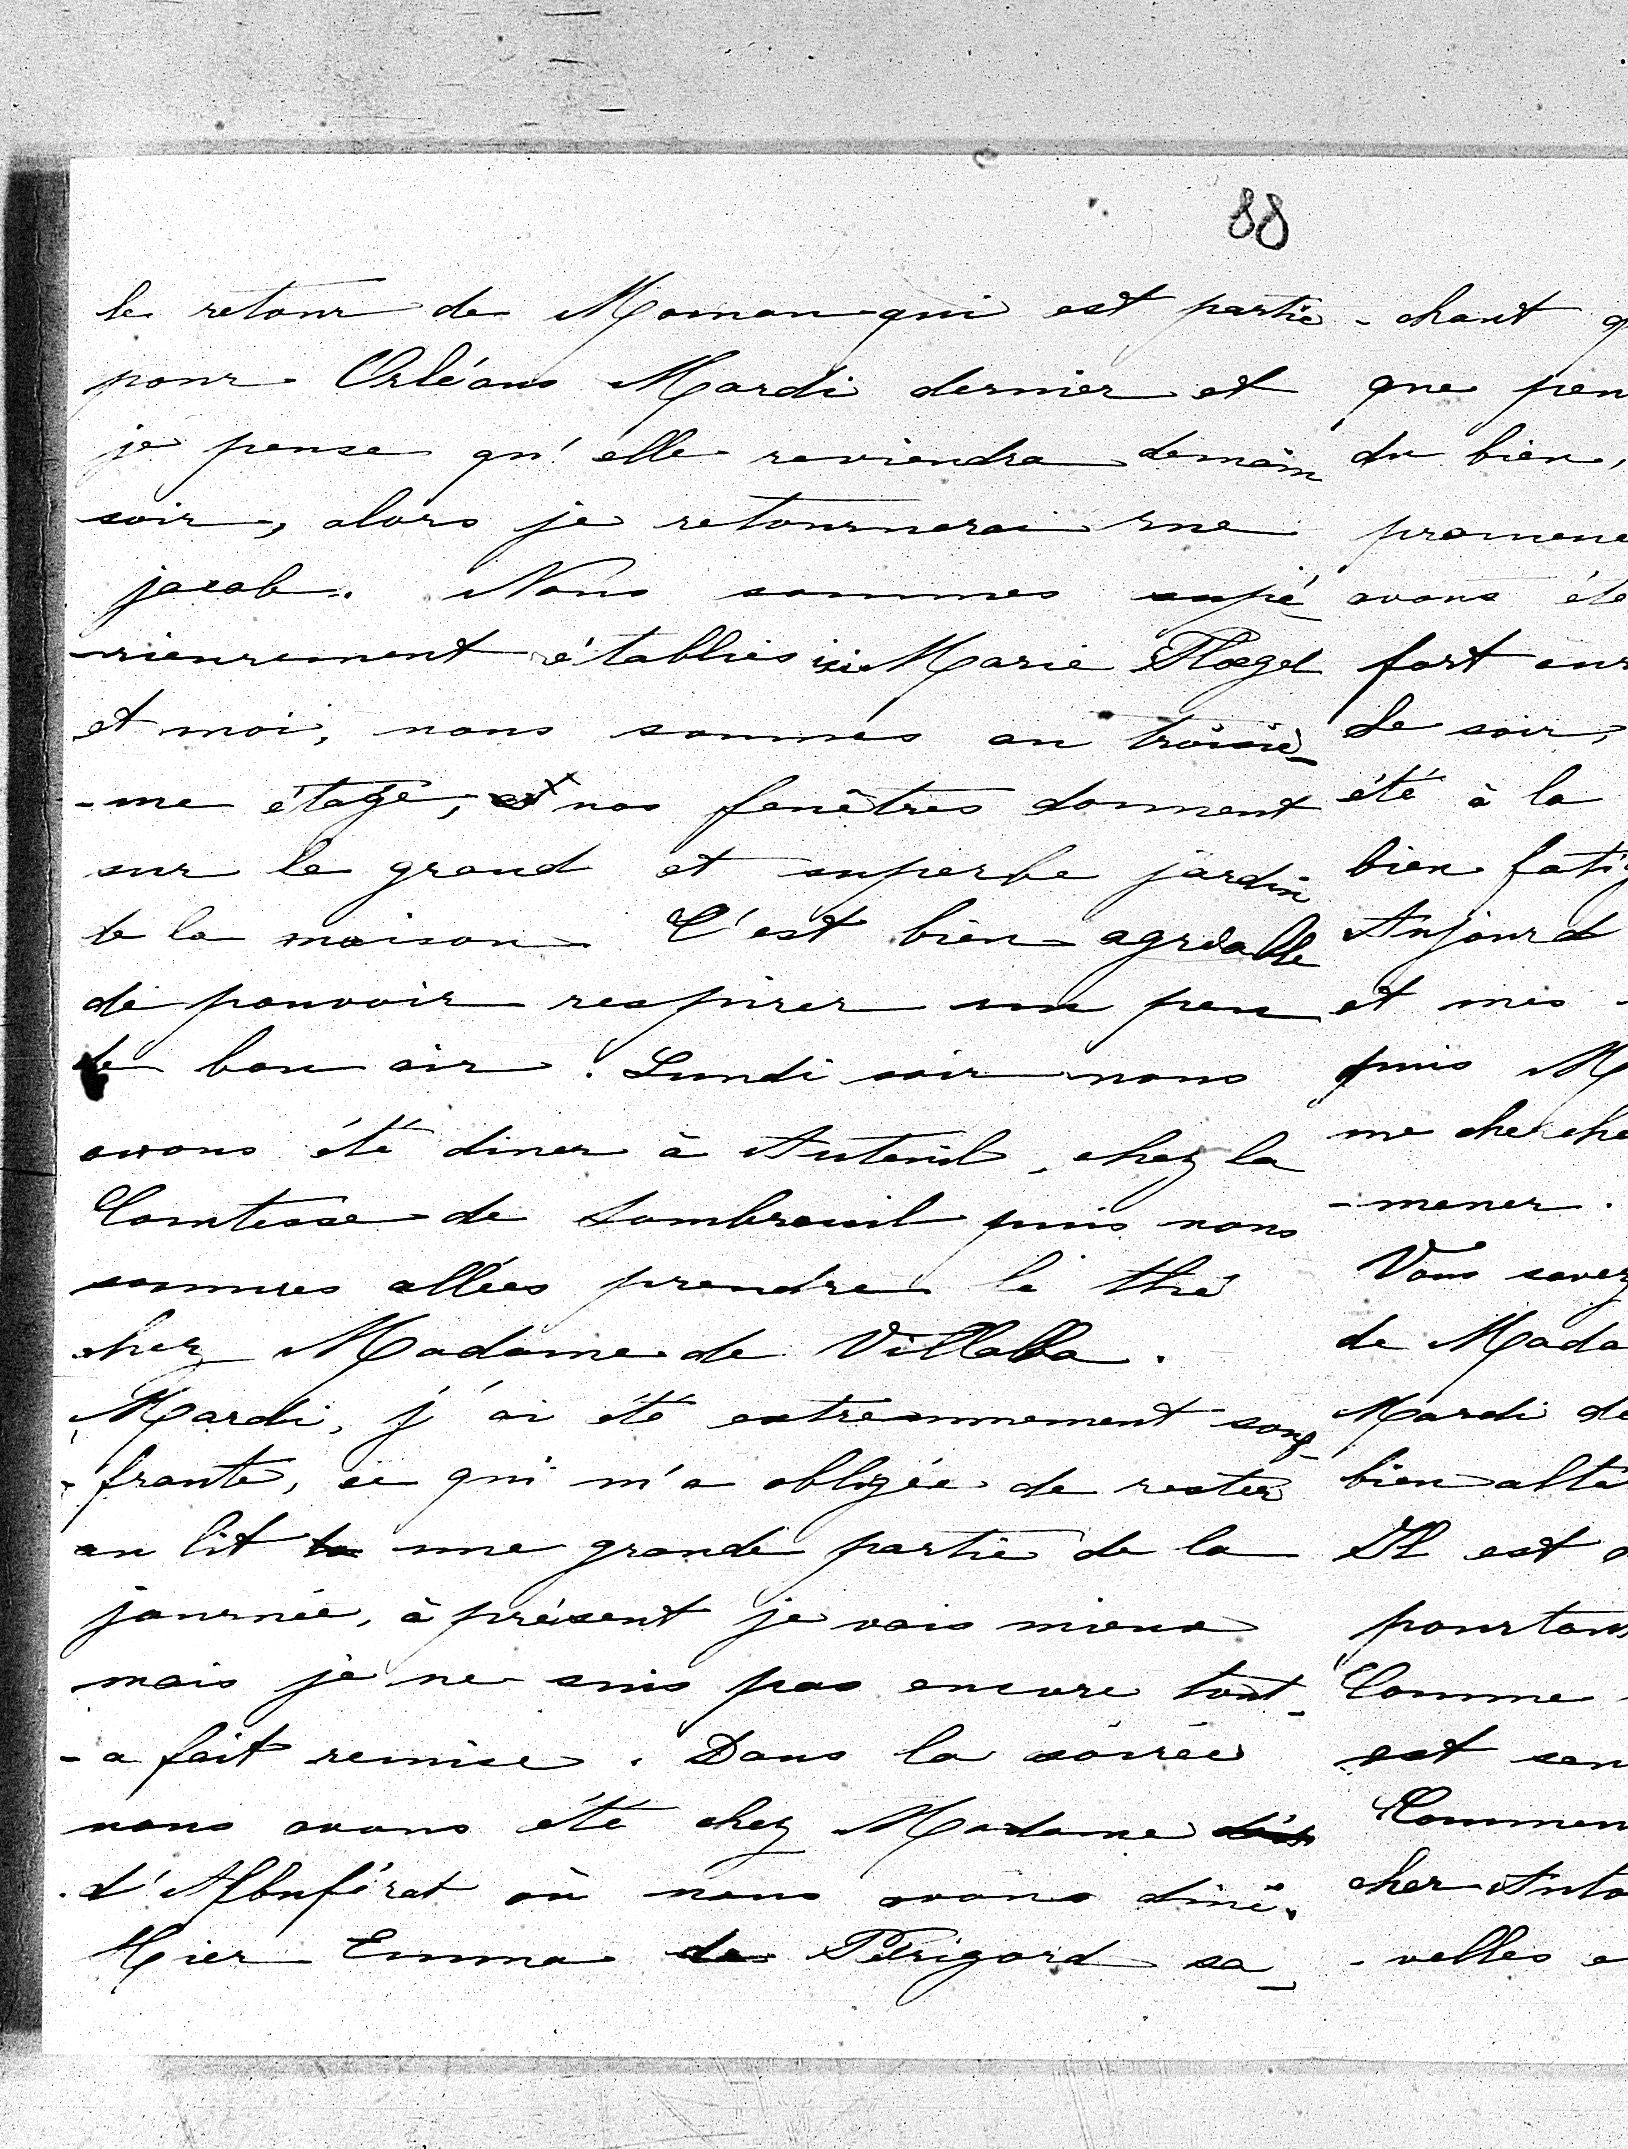 88
le retour de Maman qui est partie
pour Orléans Mardi dernier et
je pense qu'elle reviendra demain
soir, alors je retournerai rue
jacob. Nous sommes supé
-rieurement établies ici Marie
et moi, nous sommes au troisiè-
-me étage, et nos fenêtres donnent
sur le grand et superbe jardin
de la maison. C'est bien agréable
de pouvoir respirer un peu
de bon air. Lundi soir nous
avons été diner à Auteuil, chez la
Comtesse de Sombreuil puis nous
sommes allées prendre le thé
chez Madame de Villalba.
Mardi, j'ai été extremmement souf-
-frante, ce qui m'a obligée de rester
au lit une grande partie de la
journée, à présent je vais mieux
mais je ne suis pas encore tout-
-a fait remise. Dans la soirée
nous avons été chez Madame
d'Albuférat où nous avons diné.
Hier Emma de Périgord sa-
-chant q
que pen
du bien,
promene
avons été
fort
Le soir,
été à la
bien fatig
Aujourd
et mes
puis M
me cherche
-mener.
Vous savez
de Mada
Mardi de
bien
Il est
pourtan
Comme
est sen
Commen
cher Anto
-velles e